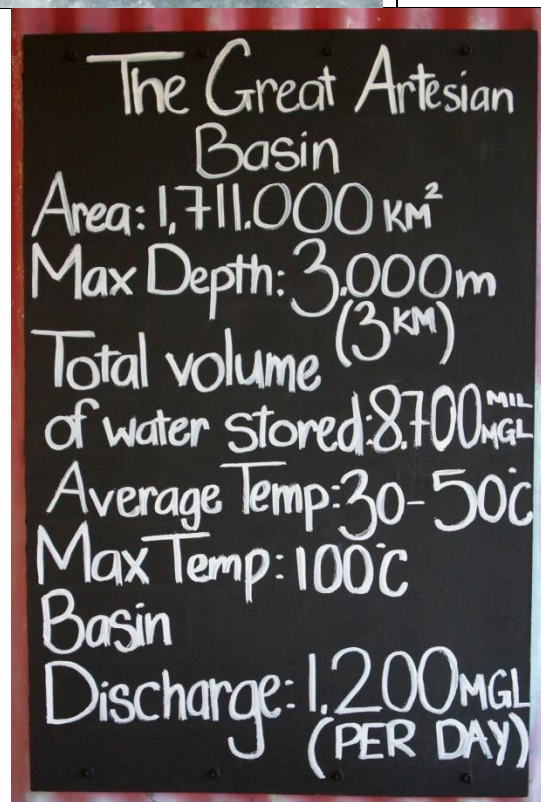 The Great Artesian
Basin
Area: 1,711.000 KM²
Max Depth: 3.000m
(3KM)
Total volume
of water stored: 8.700 MIL MGL
Average Temp: 30-50°C
Max Temp: 100°C
Basin
Discharge: 1,200 MGL
(PER DAY)